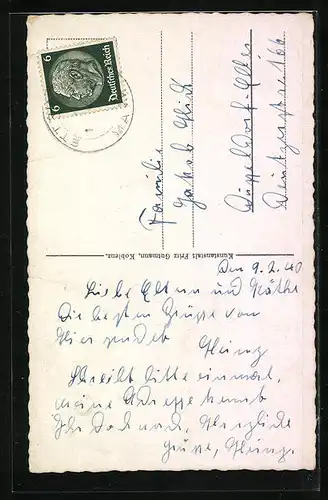 6 Deutsches Reich 6
Familie
Jakob
Düsseldorf-Eller
Kunstanstalt Fritz Gutmann, Koblenz
Den 9.2.40
Liebe Eltern und Käthe
Die besten Grüsse von
Hier sendet
Heinz
Schreibt bitte einmal,
meine Adresse kennt
Ihr doch noch, Herzliche
Grüsse, Heinz.